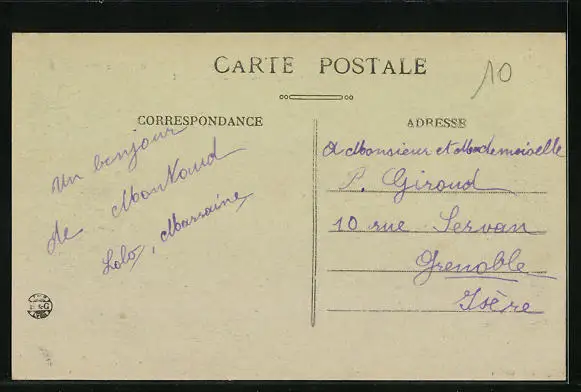 CARTE POSTALE
10
CORRESPONDANCE
Un bonjour
de MonNoud
Lolo, Marraine
ADRESSE
A Monsieur et Mademoiselle
P. Giroud
10 rue Servan
Grenoble
Isère